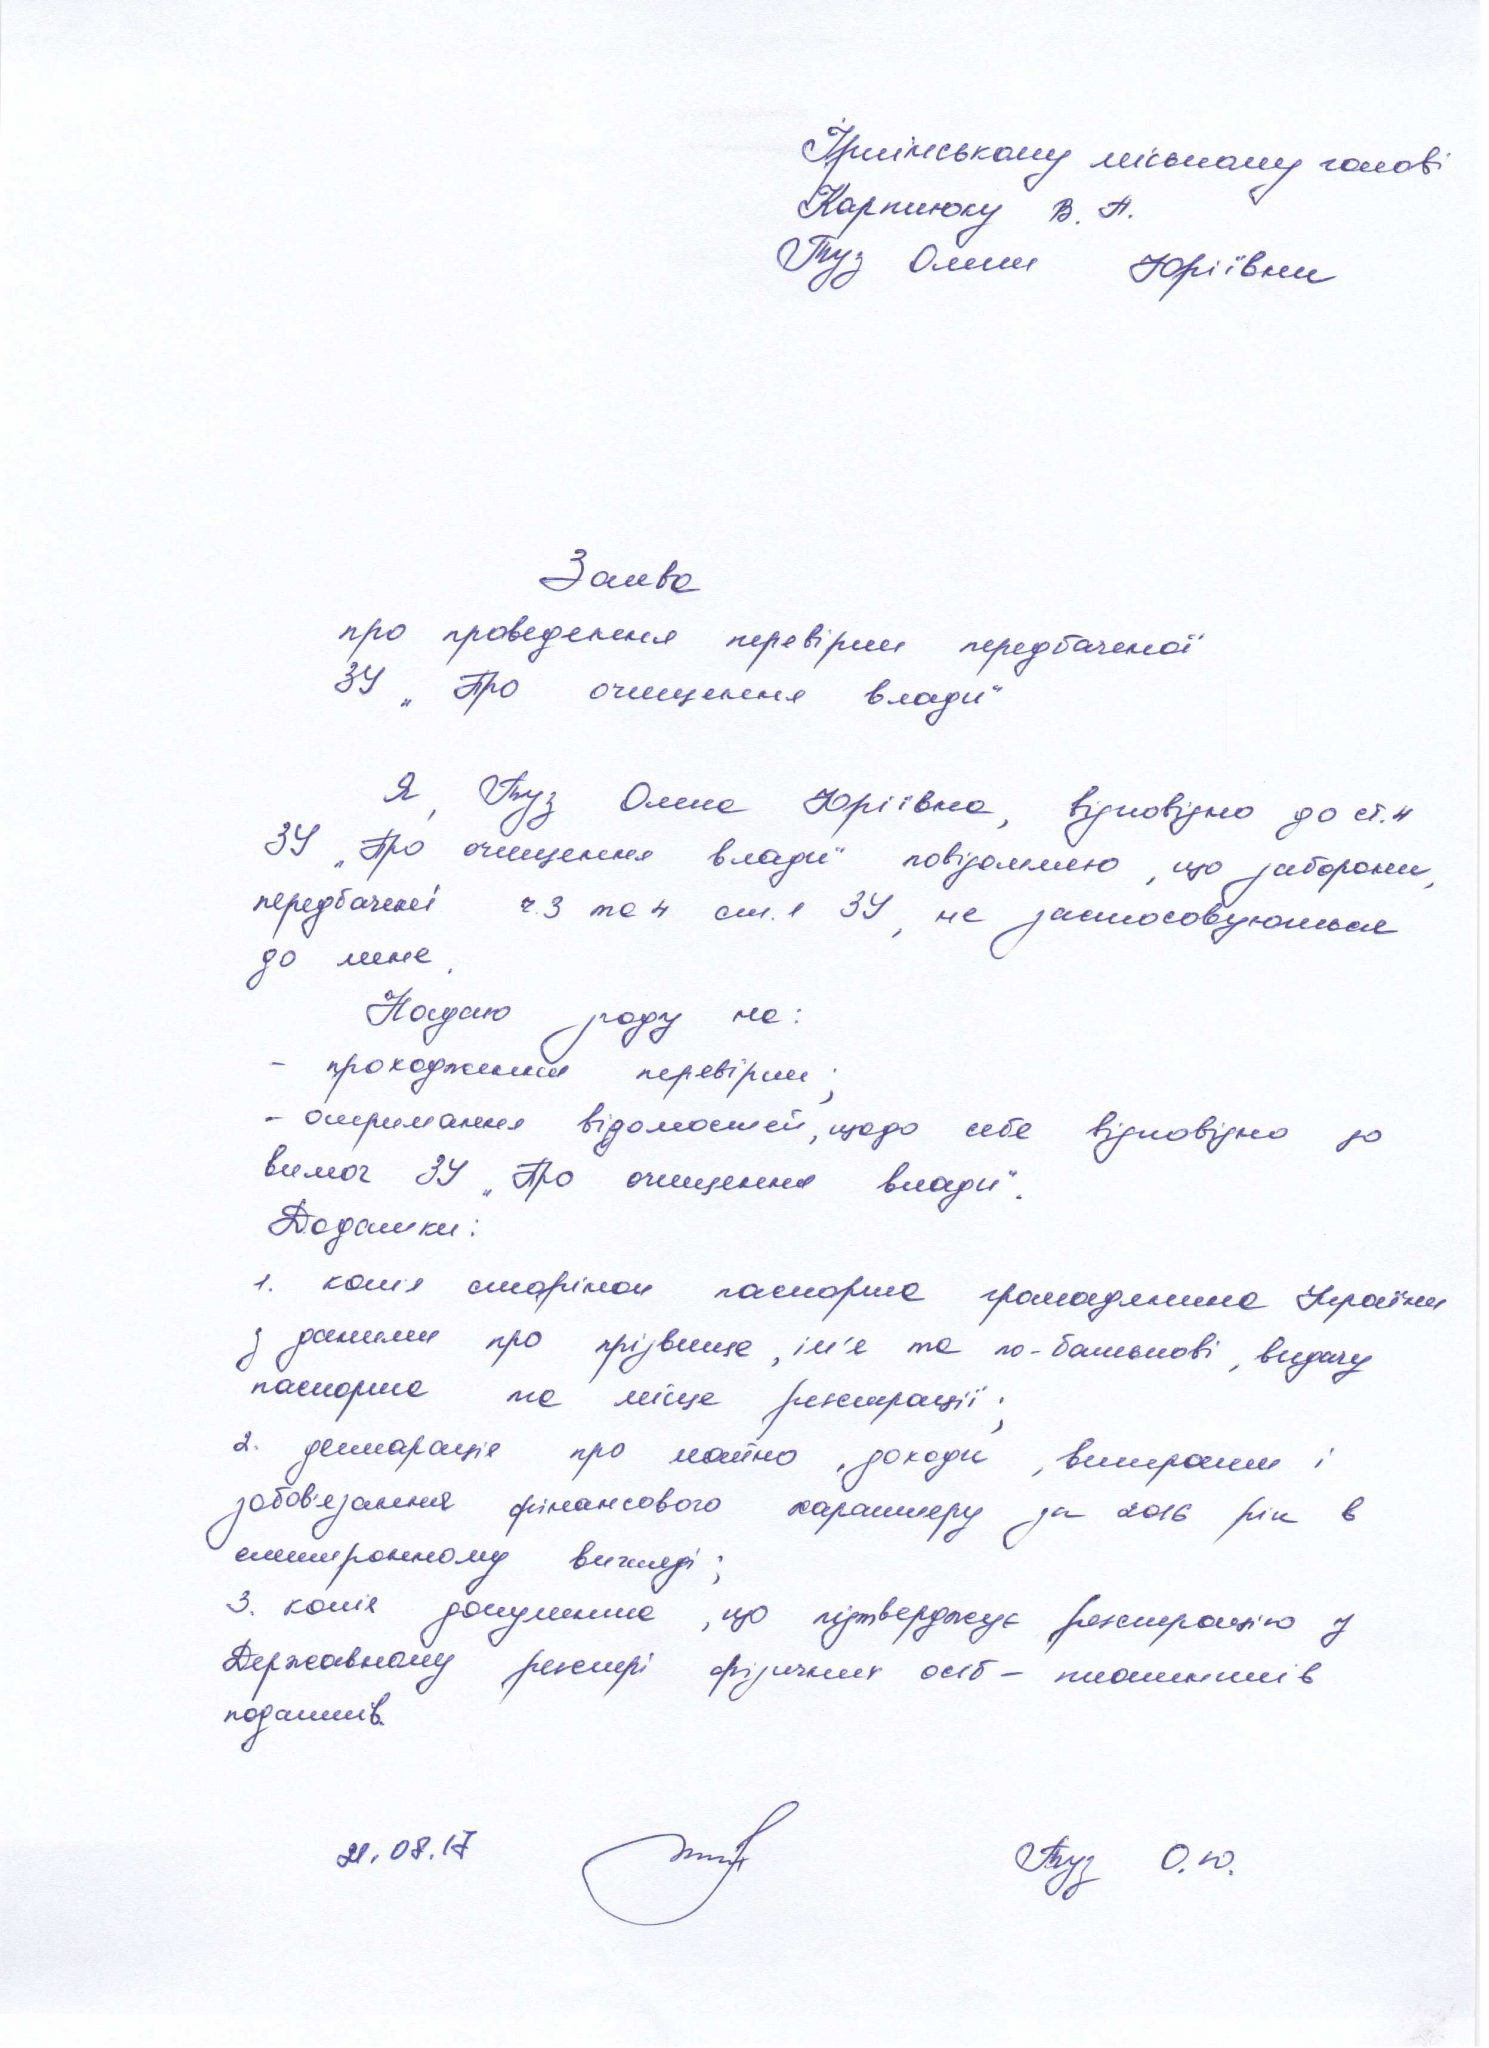 Ірпінському міському голові
Карплюку В. А.
Туз Олени Юріївни
Заява
про проведення перевірки передбаченої
ЗУ „Про очищення влади"
Я, Туз Олена Юріївна, відповідно до ст.4
ЗУ „Про очищення влади" повідомляю, що заборони,
передбачені ч.3 та 4 ст.1 ЗУ, не застосовуються
до мене.
Надаю згоду на:
- проходження перевірки;
- отримання відомостей, щодо себе відповідно до
вимог ЗУ „Про очищення влади".
Додатки:
1. копія сторінок паспорта громадянина України
з даними про прізвище, ім'я та по-батькові, видачу
паспорта та місце реєстрації;
2. декларація про майно, доходи, витрати і
зобов'язання фінансового характеру за 2016 рік в
електронному вигляді;
3. копія документа, що підтверджує реєстрацію у
Державному реєстрі фізичних осіб - платників
податків.
21.08.17 Туз О.Ю.